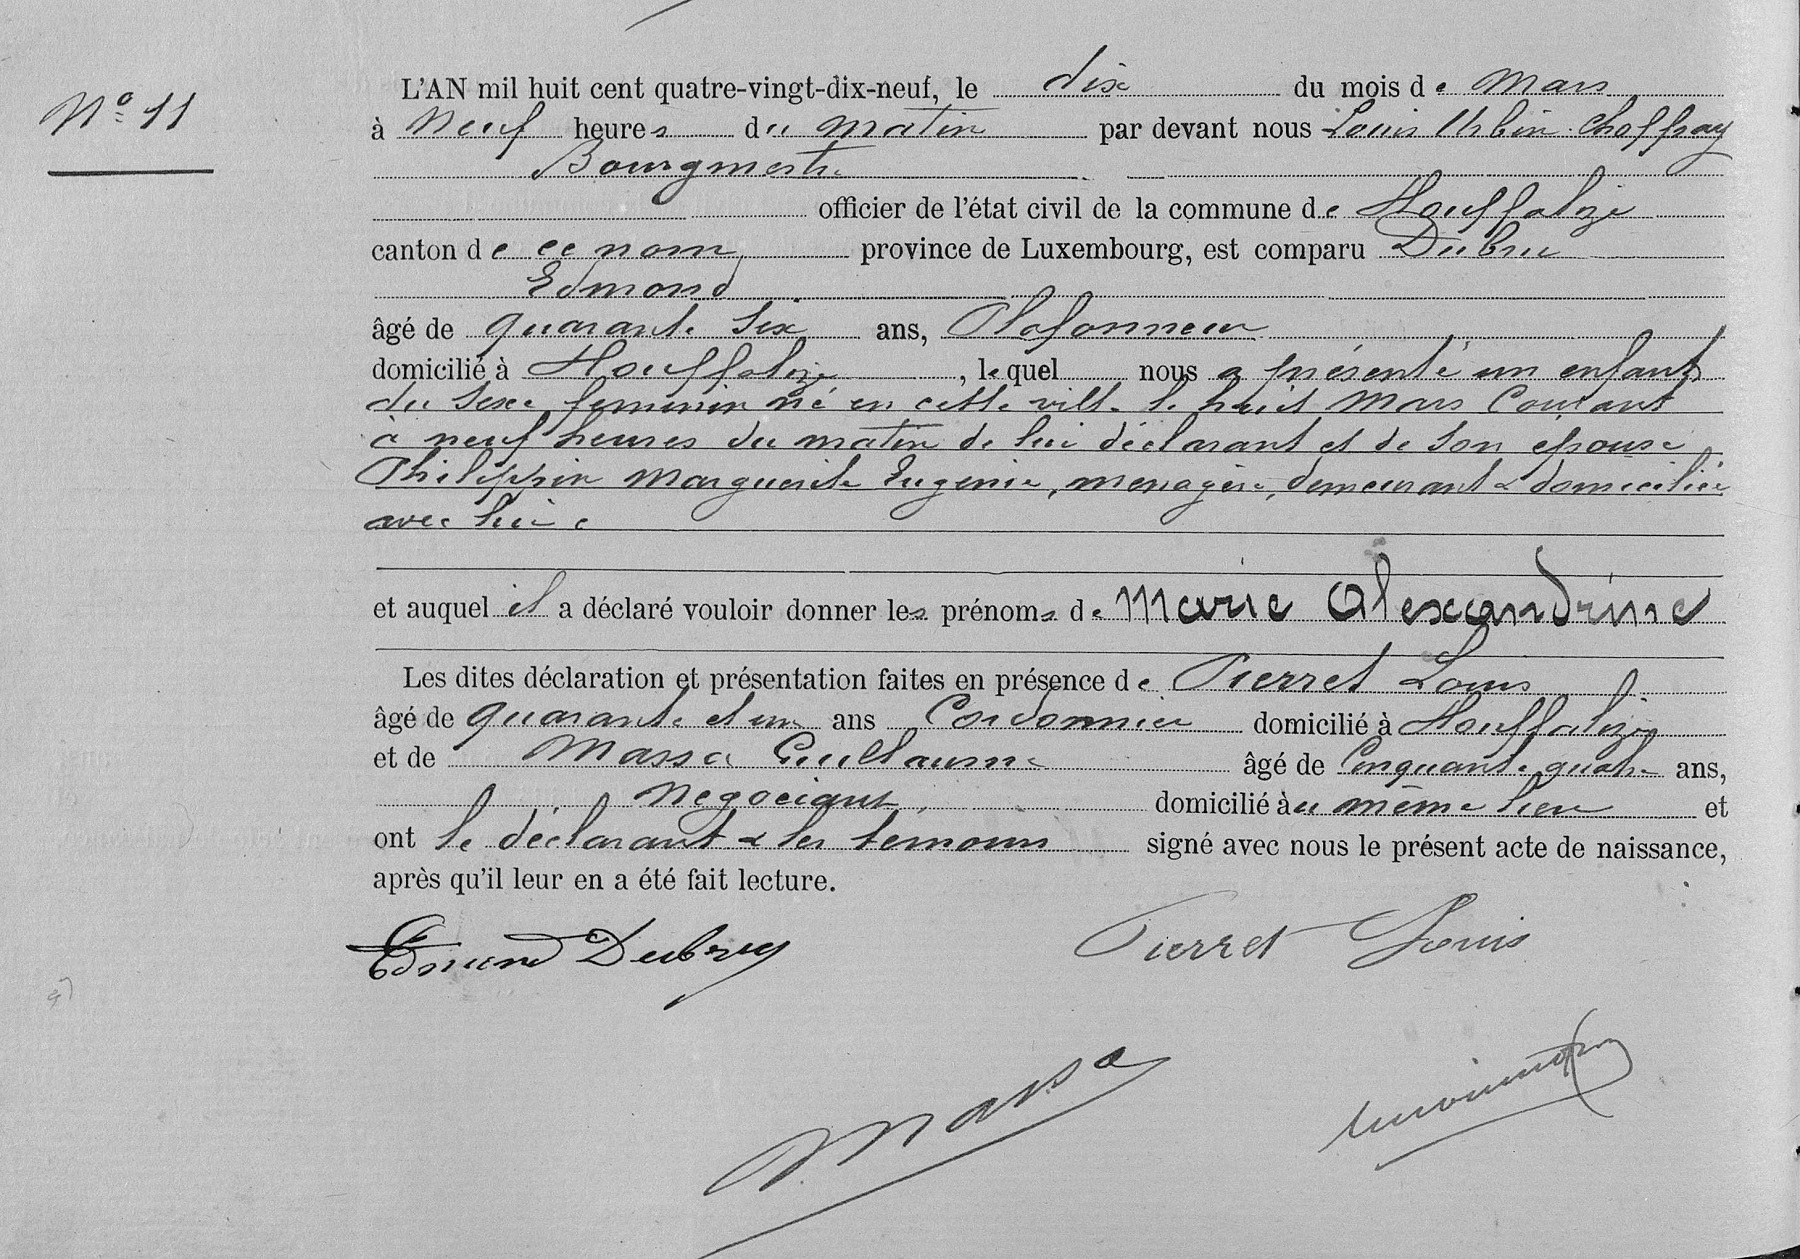 N° 11
L'AN mil huit cent quatre-vingt-dix-neuf, le dix du mois de Mars
à Neuf heures du matin par devant nous Louis Urbin Choffray
Bourgmestre
officier de l'état civil de la commune de Houffalize
canton de ce nom, province de Luxembourg, est comparu Dubru
Edmond
âgé de quarante six ans, Plafonneur
domicilié à Houffalize, lequel nous a présenté un enfant
du sexe feminin né en cette ville le huit Mars Courant
à neuf heures du matin de lui déclarant et de son épouse
Philippin Marguerite Eugénie, menagère, demeurant & domiciliée
avec lui
et auquel il a déclaré vouloir donner les prénoms de Marie Alexandrine
Les dites déclaration et présentation faites en présence de Pierret Louis
âgé de quarante et un ans Cordonnier domicilié à Houffalize
et de Massa Guillaume âgé de Cinquante quatre ans,
Négociant, domicilié au même lieu et
ont le déclarant & les témoins signé avec nous le présent acte de naissance,
après qu'il leur en a été fait lecture.
Edmond Dubru Pierret Louis
Massa